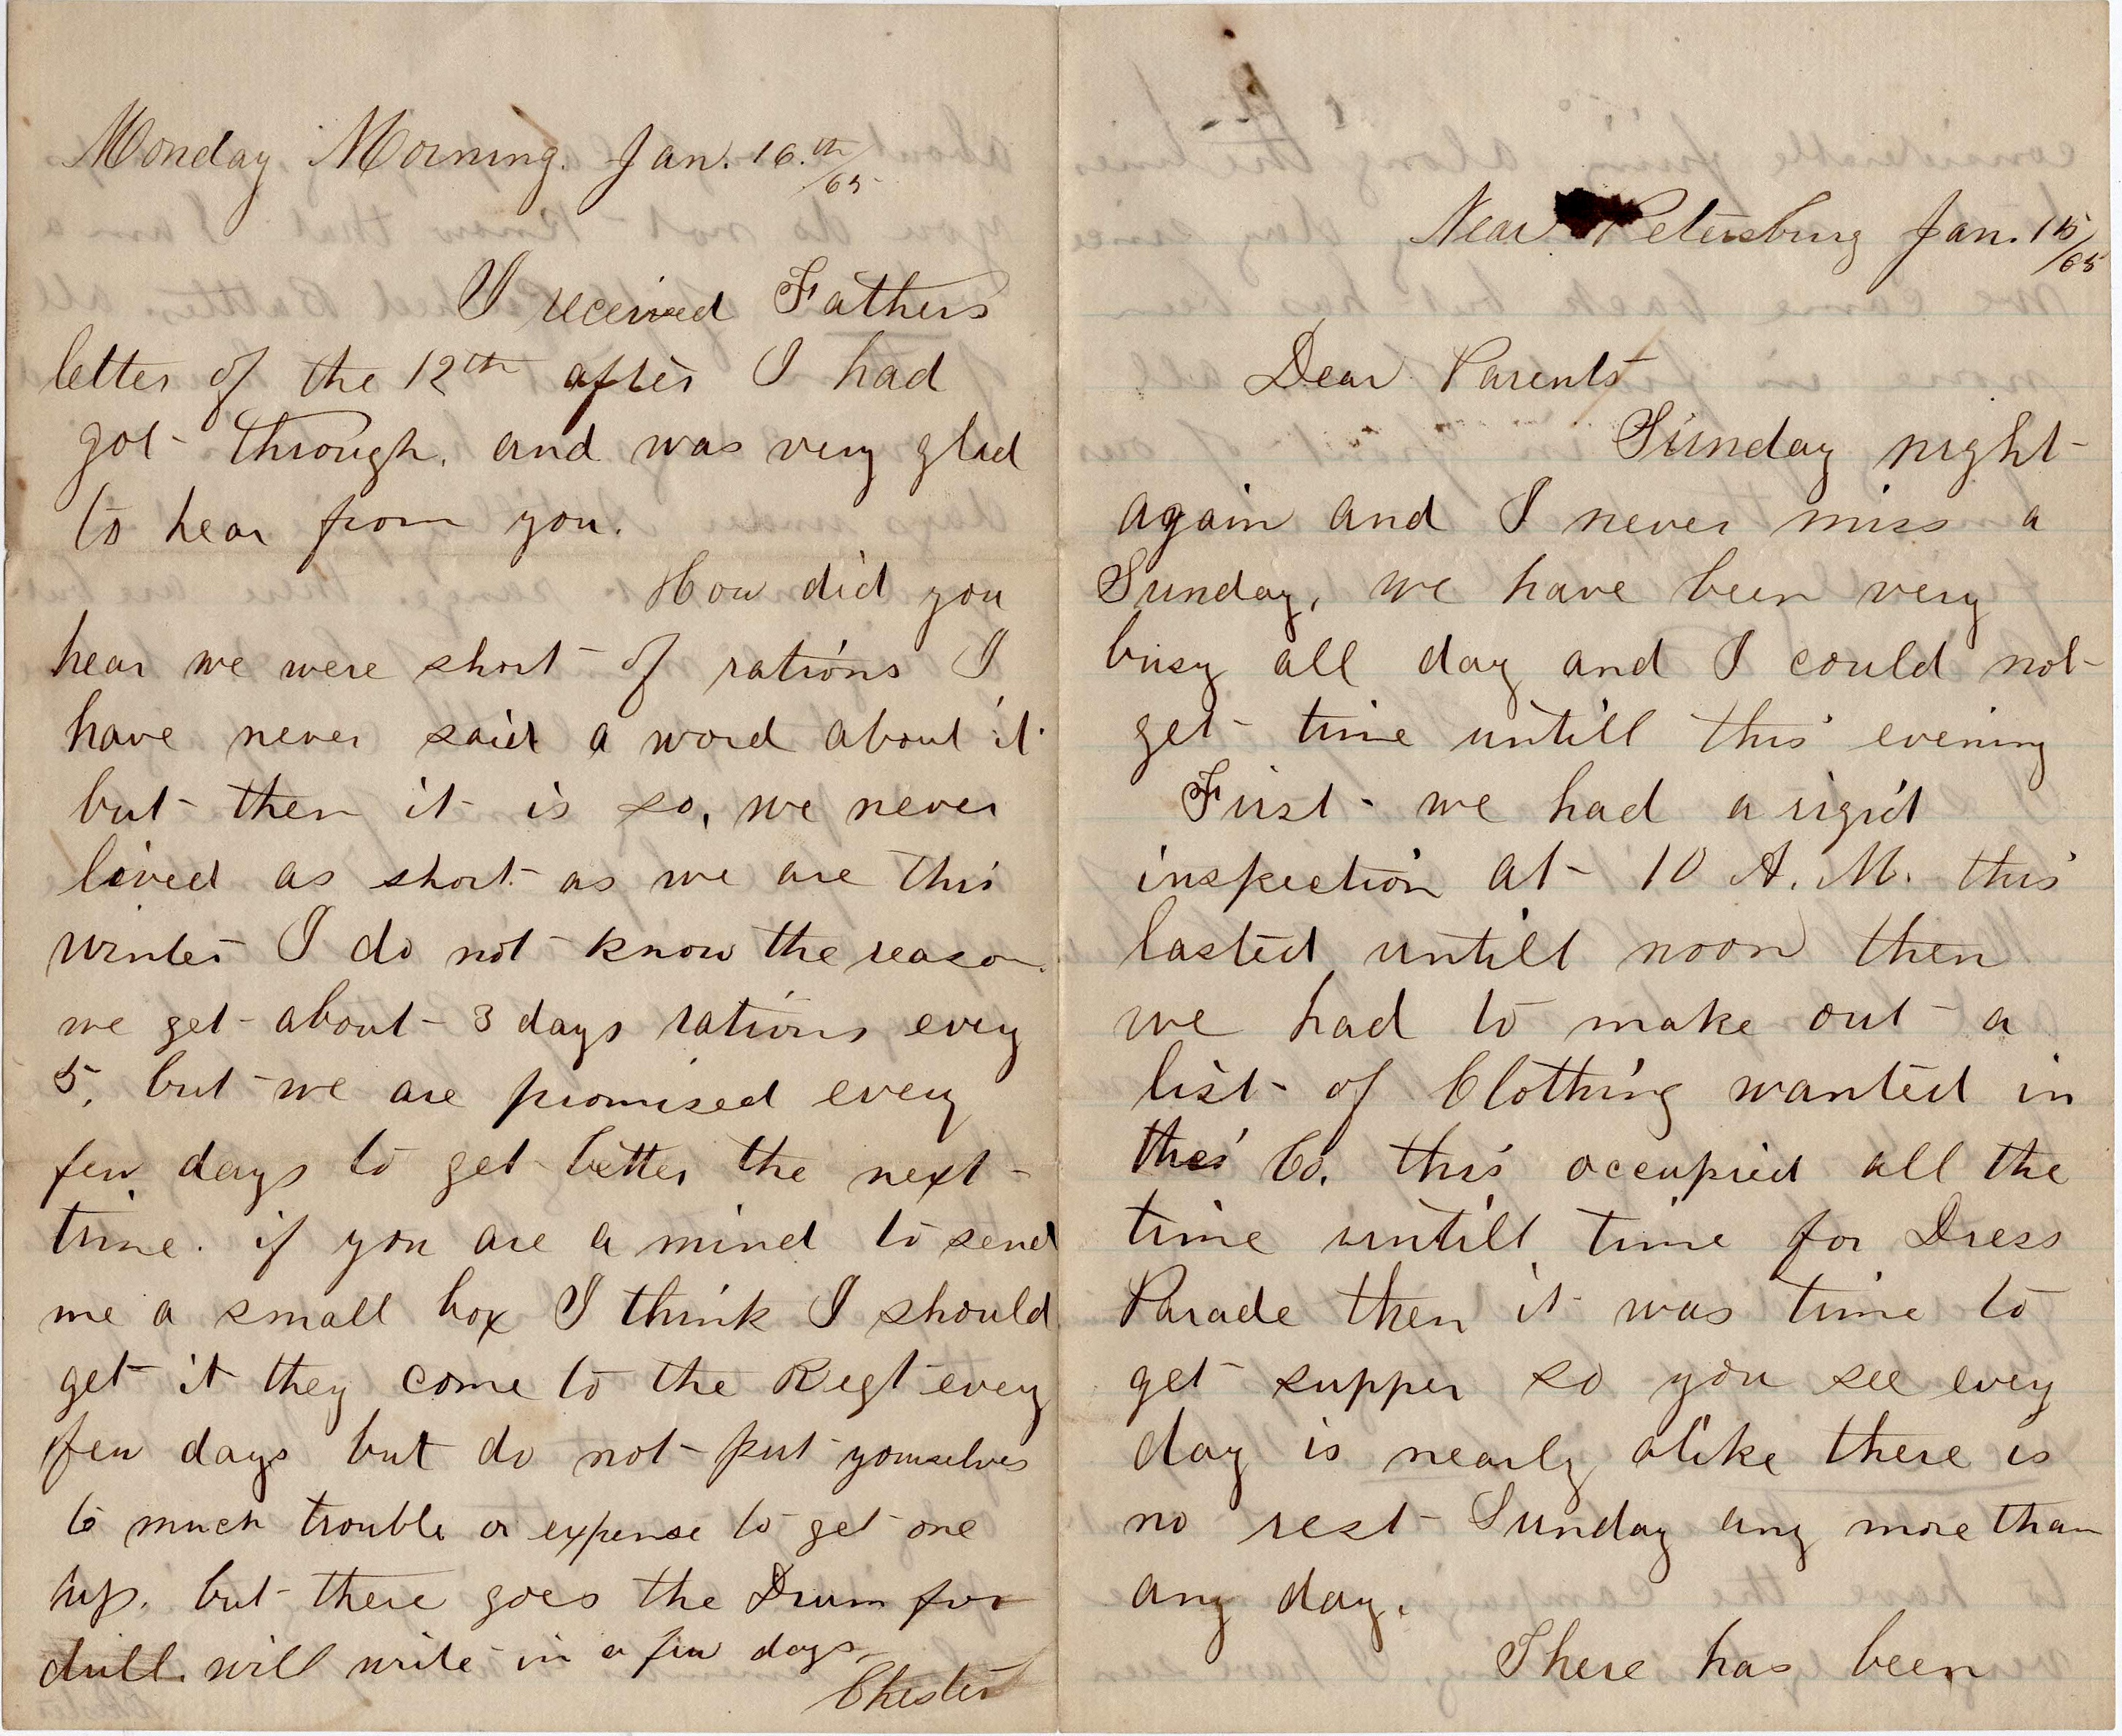 Monday Morning. Jan. 16.th/65
I received Fathers
letter of the 12th after I had
got through. and was very glad
to hear from you.
How did you
hear we were short of rations I
have never said a word about it
but then it is so, we never
lived as short as we are this
winter I do not know the reason
we get about 3 days rations every
5, but we are promised every
few days to get better the next
time. if you are a mind to send
me a small box I think I should
get it they come to the Regt every
few days but do not put yourselves
to much trouble or expense to get one
up. but there goes the Drum for
drill. will write in a few days
Chester
Near Petersburg Jan. 15/65
Dear Parents
Sunday night
again and I never miss a
Sunday, we have been very
busy all day and I could not
get time untill this evening
First we had a rigid
inspection at 10 A. M. this
lasted untill noon then
we had to make out a
list of Clothing wanted in
the Co. this occupied all the
time untill time for Dress
Parade then it was time to
get supper so you see every
day is nearly alike there is
no rest Sunday any more than
any day.
There has been